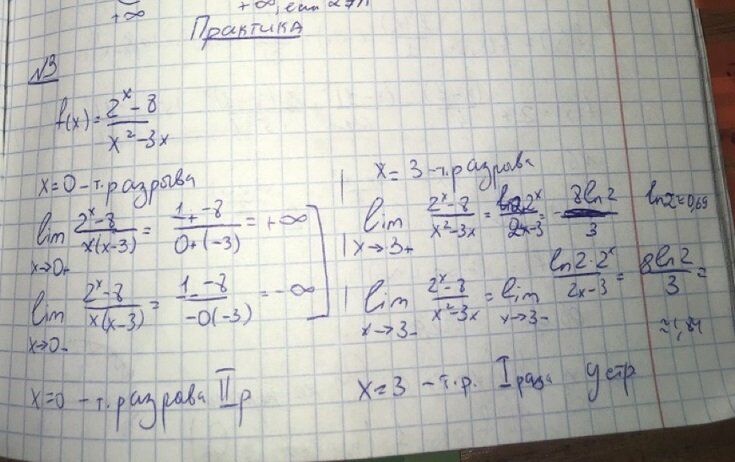 +∞
+∞, если α>1
Практика
N3
f(x) = (2^x - 8)/(x^2 - 3x)
x=0 - т. разрыва
lim x→0+ (2^x - 8)/(x(x-3)) = (1+ - 8)/(0+(-3)) = +∞
lim x→0- (2^x - 8)/(x(x-3)) = (1- - 8)/(-0(-3)) = -∞
x=0 - т. разрова II р
x = 3 - т. разрова
lim x→3+ (2^x - 8)/(x^2 - 3x) = (ln2 2^x)/(2x-3) = (8ln2)/3
ln2=0,69
lim x→3- (2^x - 8)/(x^2 - 3x) = lim x→3- (ln2·2^x)/(2x-3) = (8ln2)/3 =
≈1,84
x=3 - т.р. I рода устр